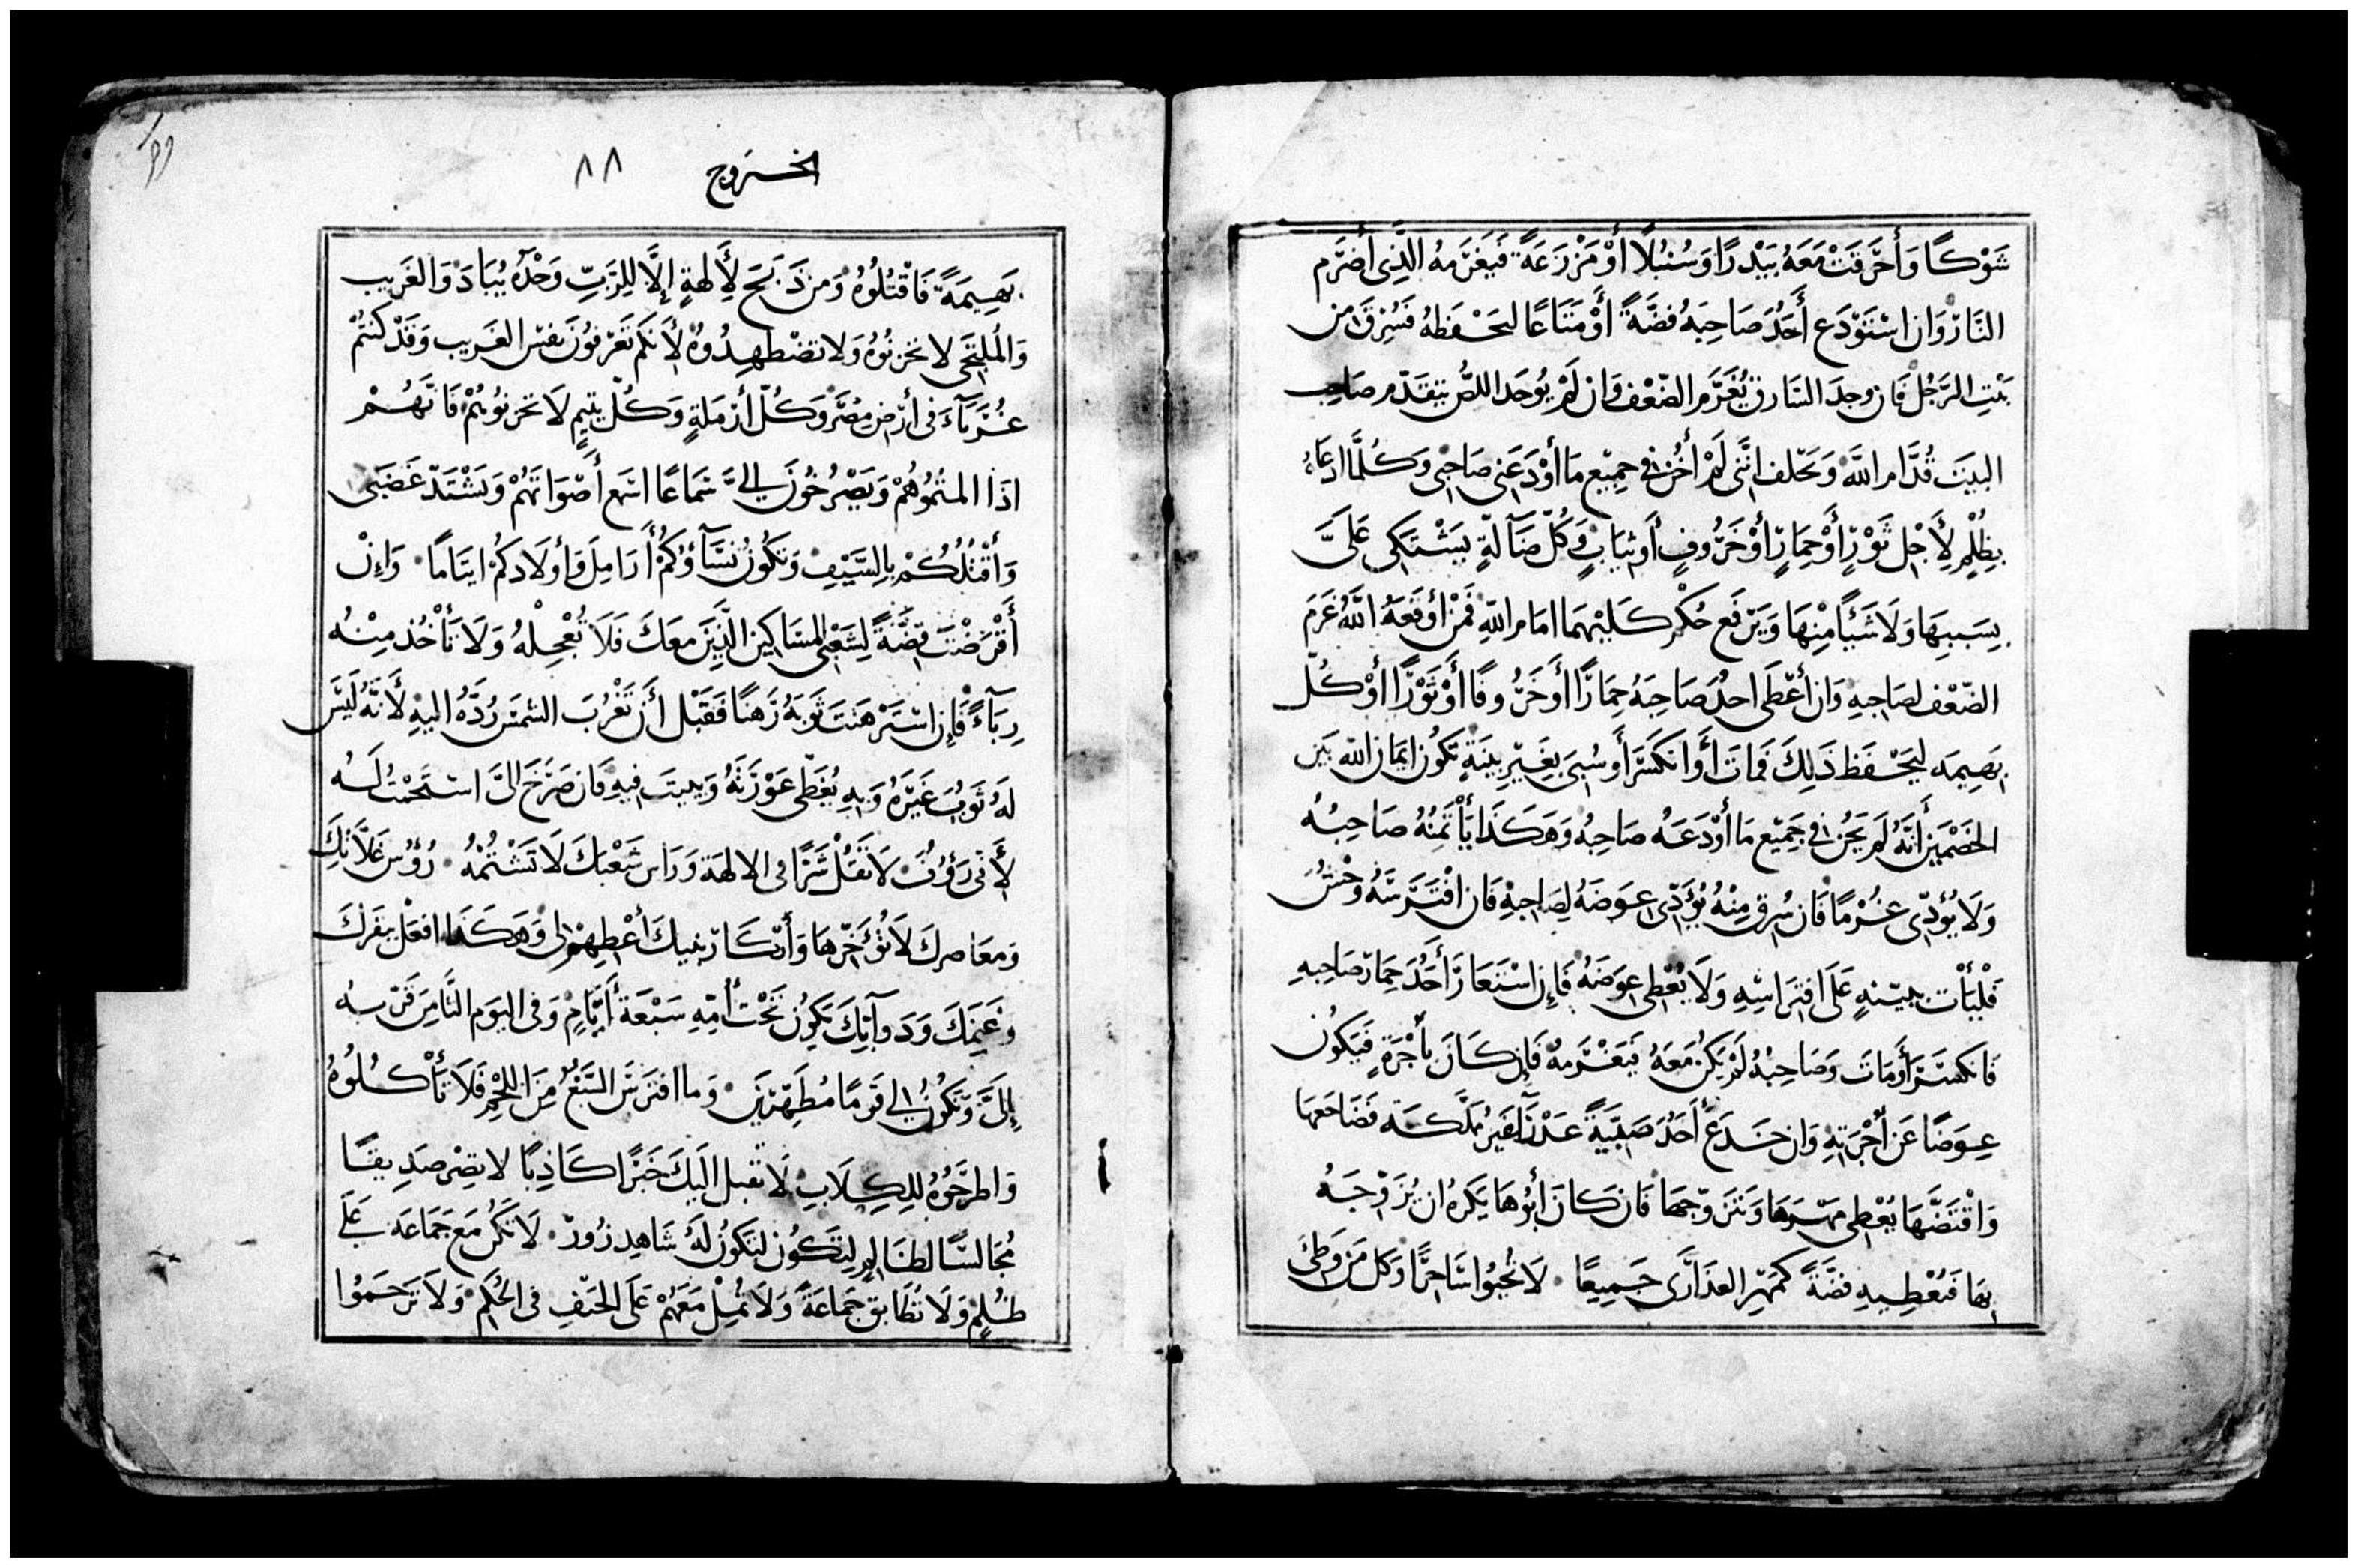 شَوْكًا وَأَحْرَقَتْ مَعَهُ بَيْدَرًا وَسُنْبُلًا أَوْ مَزْرَعَةً فَيَغْرَمهُ الَّذِى أَضْرَم
النَّارْ وَان اسْتَوْدَع أَحَدُ صَاحِبَهُ فضَّةً أَوْ مَتَاعًا ليَحْفَظهُ فَسُرِقَ من
بَيْتِ الرَّجُل فَان وجدَ السَّارق يُغَرَّم الضّعْف وَان لَمْ يُوجَد اللصُّ يتقدّم صاحِب
البيَت قُدَّام اللَّه وَيَحْلف انَّنى لَمْ أَخُن فى جميْع مَا أوْدَعَنى صَاحِبى وَكُلَّمَا ادعَاهُ
بِظُلْمٍ لِأَجْل ثَوْرٍ أَوْ حِمَارٍ أَوْ خَرُوفٍ أَو ثيَابٍ وَكُلّ ضَآلةٍ يَشْتَكى عَلَىَّ
بِسَبَبِهَا وَلَا شَيْئًا مِنْهَا وَيَرْفَع حُكْم كلَيْهمَا امَام اللّهِ فمَنْ أَوْقَعَهُ اللّهُ غَرمَ
الضّعْف لصَاحِبهِ وَان أعْطَى احدُ صَاحِبَهُ حِمَارًا أَو خَرُوفًا أَوْ ثَوْرًا أوْ كُلّ
بَهِيمَه ليَحْفَظ ذَلِكَ فَمَاتَ أَو انكَسَر أَو سُبىَ بِغَيْرِ بينَةٍ تَكُون ايمَان اللّه بَين
الخصْمَين أَنَّهُ لَم يَخُن فى جَميْع مَا أوْدَعَهُ صَاحِبُهُ وَهَكذَا يَأتَمنُهُ صَاحِبُهُ
وَلَا يُؤدّى غُرْمًا فَان سُرق مِنْهُ يُؤَدّى عِوَضَهُ لِصَاحِبهِ فَان افْتَرسَهُ وَحْشُ
فَلْيَأت ببيّنهٍ عَلَى افتراسِهِ وَلَا يُعْطى عِوَضَهُ فَإِن اسْتَعَارَ أَحَدُ حِمَار صَاحِبهِ
فَانكسَرَ أَو مَات وَصَاحِبُهُ لَمْ يَكُن مَعَهُ فيَغْرَمهُ فَإِن كَانَ بأُجْرَةٍ فَيَكُون
عِوَضًا عَن أُجْرَتهِ وَان خَدَع أَحَدُ صَبيَّةً عَذْرَآءَ غَيْرَ مُمَلَّكَه فَضَاجَعهَا
وَافْتَضَّهَا يُعْطى مَهْرهَا وَيَتَزَوّجهَا فَان كَانَ أَبُوهَا يَكرهُ ان يُزَوِّجَهُ
بهَا فَيُعْطِيهِ فضَّةً كَمَهْرِ العذَارَى جَمِيعًا ٠ لَا تُحيُوا سَاحِرًا وَكل مَن وَطِئ
الخروج ٨٨
بَهِيمَةً فَاقْتُلُوهُ وَمن ذَبَحَ لِأَلهةٍ إِلَّا لِلرَبِّ وَحْدَهُ يُبَادَ وَالغَريب
وَالمُلتجَى لا تحزنُوهُ وَلا تضْطهِدُوهُ لِأَنكم تعْرفُونَ نفسَ الغَريب وَقدْ كنتُمْ
غُرَبَآءَ فى أَرْضِ مِصْرَ وَكُلّ أَرْمَلةٍ وَكُلّ يتيمٍ لَا تحزنُوهُمْ فَانَّهُمْ
اذَا المتمُوهُمْ وَيَصْرُخُونَ إلىَّ سَمَاعًا اسْمع أَصْوَاتهُمْ وَيَشْتَدّ غَضَبى
وَأَقْتُلُكُمْ بالسَّيْفِ وَتكُون نسَآؤكُمْ أَرَامِلَ وَأولَادكُمْ ايتامًا ٠ وَإِنْ
أَقْرَضْتَ فِضَّةً لِشَعْبى المسَاكين الَّذِينَ معَكَ فَلَا تُعْجِلْهُ وَلَا تَأْخُذ مِنْهُ
رِبَآءً فَإِن اسْتَرْهَنتَ ثَوبَهُ رَهنًا فَقَبْل أَن تَغْرُبَ الشمَس رُدَّهُ اليهِ لأَنَّهُ لَيْسَ
لَهُ ثَوبُ غَيْرَهُ وَبهِ يُغَطّى عَوْرَتَهُ وَيبيتَ فيهِ فَان صَرَخَ الىَّ اسْتَجَبْتُ لَهُ
لأَنى رَؤُفُ ٠ لَا تَقُلْ شَرًّا فى الالهَة وَرَاس شَعْبكَ لَا تَشْتُمْهُ ٠ رُؤُس غَلَّاتكَ
وَمعَاصرك لَا تُؤَخّرهَا وَأَبْكَار بَنيكَ أَعْطِهمْ لى وَهَكذَا افعَل ببَقَرك
وَغَنمِكَ وَدَوآبِّكَ يَكُون تَحْتَ أُمِّهِ سَبْعَة أَيَّامٍ وَفى اليَوم الثَّامِن قَرّبهُ
إِلىَّ وَتَكُونُوا لى قَومًا مُطَهَّرِينَ ٠ وَما افتَرسَ السَّبُعُ مِنَ اللحْمِ فَلَا تَأكُلُوهُ
وَاطرَحُوهُ للكِلَابِ ٠ لَا تقبل اليَك خَبَرًا كَاذِبًا لا تصِرْ صَدِيقًا
مُجَالسًا لظَالم لتكُون لتكُونَ لَهُ شَاهِد زُورْ ٠ لَا تَكُن مَعَ جَمَاعَه عَلَى
ظُلمٍ وَلَا تُطَابق جَمَاعَةً وَلَا تمِلْ مَعَهُمْ عَلَى الحَيفِ فى الحُكم ٠ وَلَا تَرحَمُوا